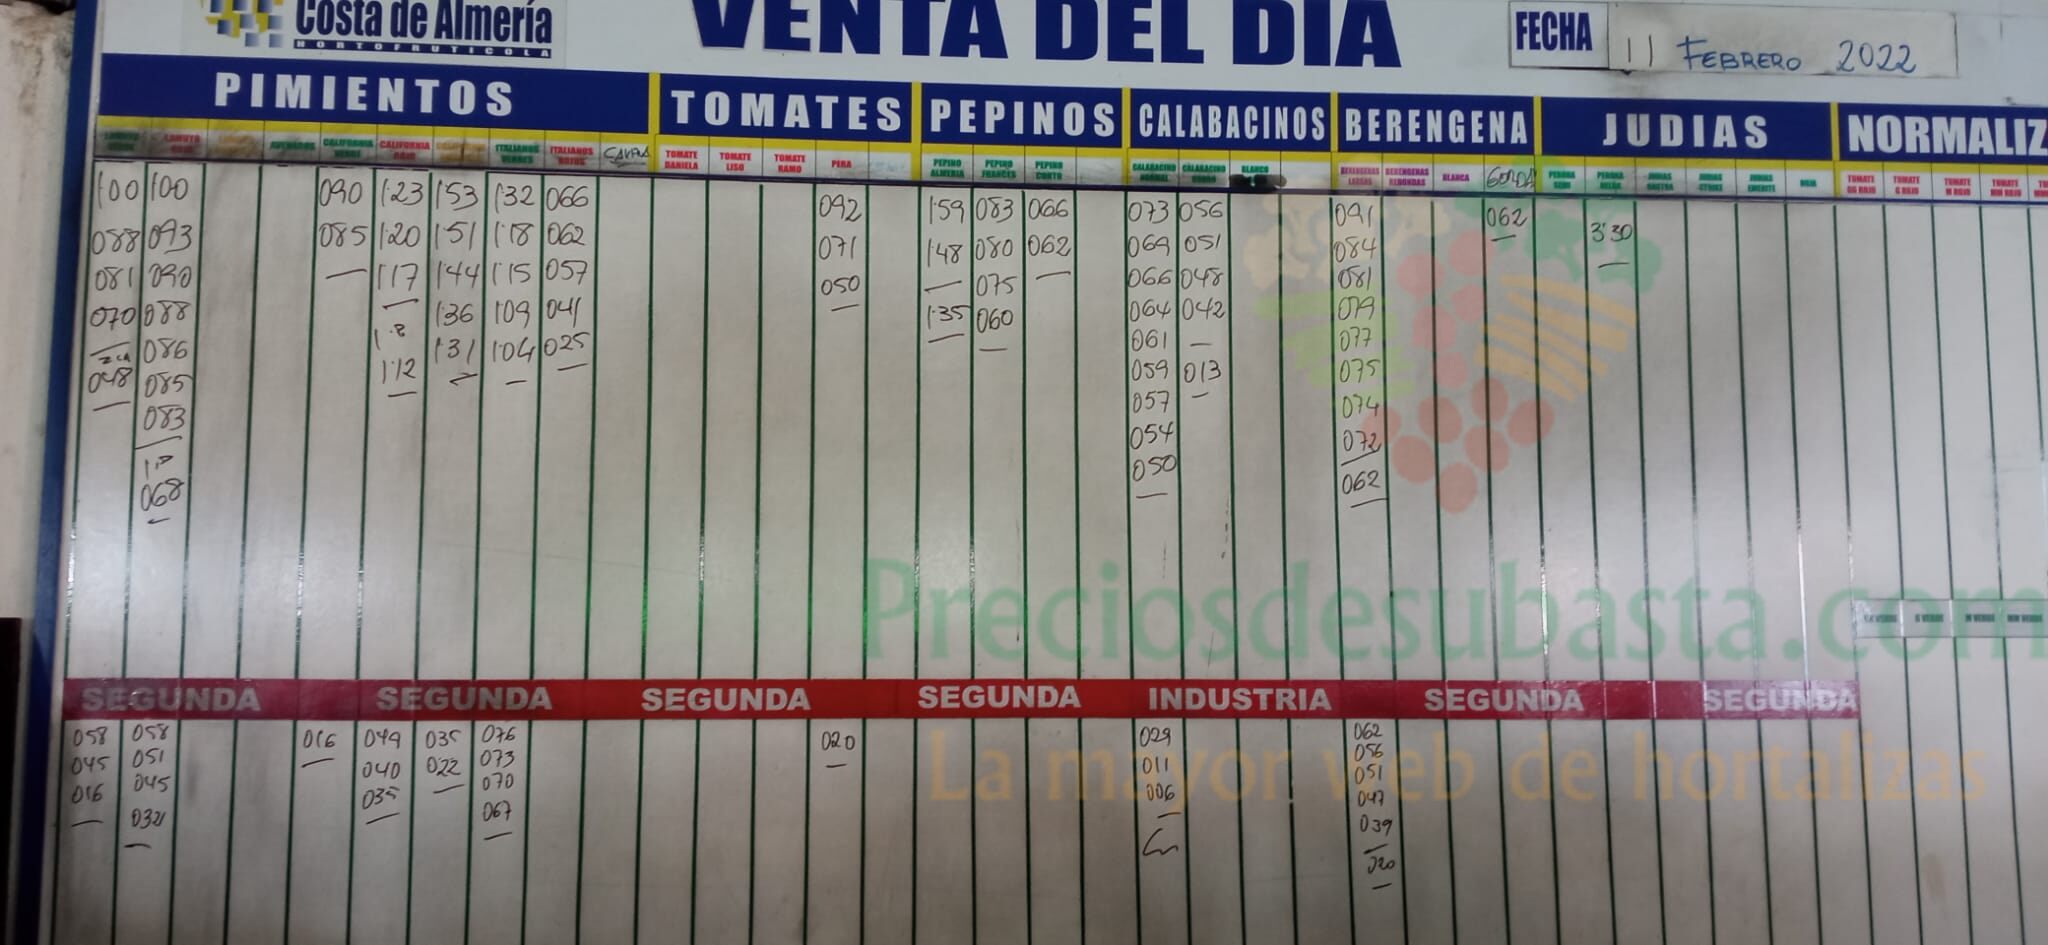 Costa de Almería
HORTOFRUTICOLA
VENTA DEL DIA
FECHA 11 FEBRERO 2022
PIMIENTOS TOMATES PEPINOS CALABACINOS BERENGENA JUDIAS NORMALIZ
CALIFORNIA VERDE CALIFORNIA ROJO ITALIANOS VERDES ITALIANOS ROJOS TOMATE DANIELA TOMATE LISO TOMATE RAMO PERA PEPINO ALMERIA PEPINO FRANCES PEPINO CORTO CALABACINO NORMAL CALABACINO GORDO BLANCO BERENGENAS LARGAS BERENGENAS REDONDAS BLANCA GORDA PERONA SEMI PERONA ROJA TOMATE GG ROJO TOMATE G ROJO TOMATE M ROJO TOMATE MM ROJO
100 100 090 1'23 1'53 1'32 066 092 1'59 083 066 073 056 091 062 3'30
088 093 085 1'20 1'51 1'18 062 071 1'48 080 062 069 051 084
081 090 1'17 1'44 1'15 057 050 075 066 048 081
070 088 1'36 109 041 1'35 060 064 042 079
086 1'31 1'04 025 061 077
048 085 1'12 059 013 075
083 057 074
054 072
068 050 062
Preciosdesubasta.com
SEGUNDA SEGUNDA SEGUNDA SEGUNDA INDUSTRIA SEGUNDA SEGUNDA
058 058 016 049 035 076 020 029 062
045 051 040 022 073 011 056
016 045 035 070 006 051
032 067 047
039
020
La mayor web de hortalizas